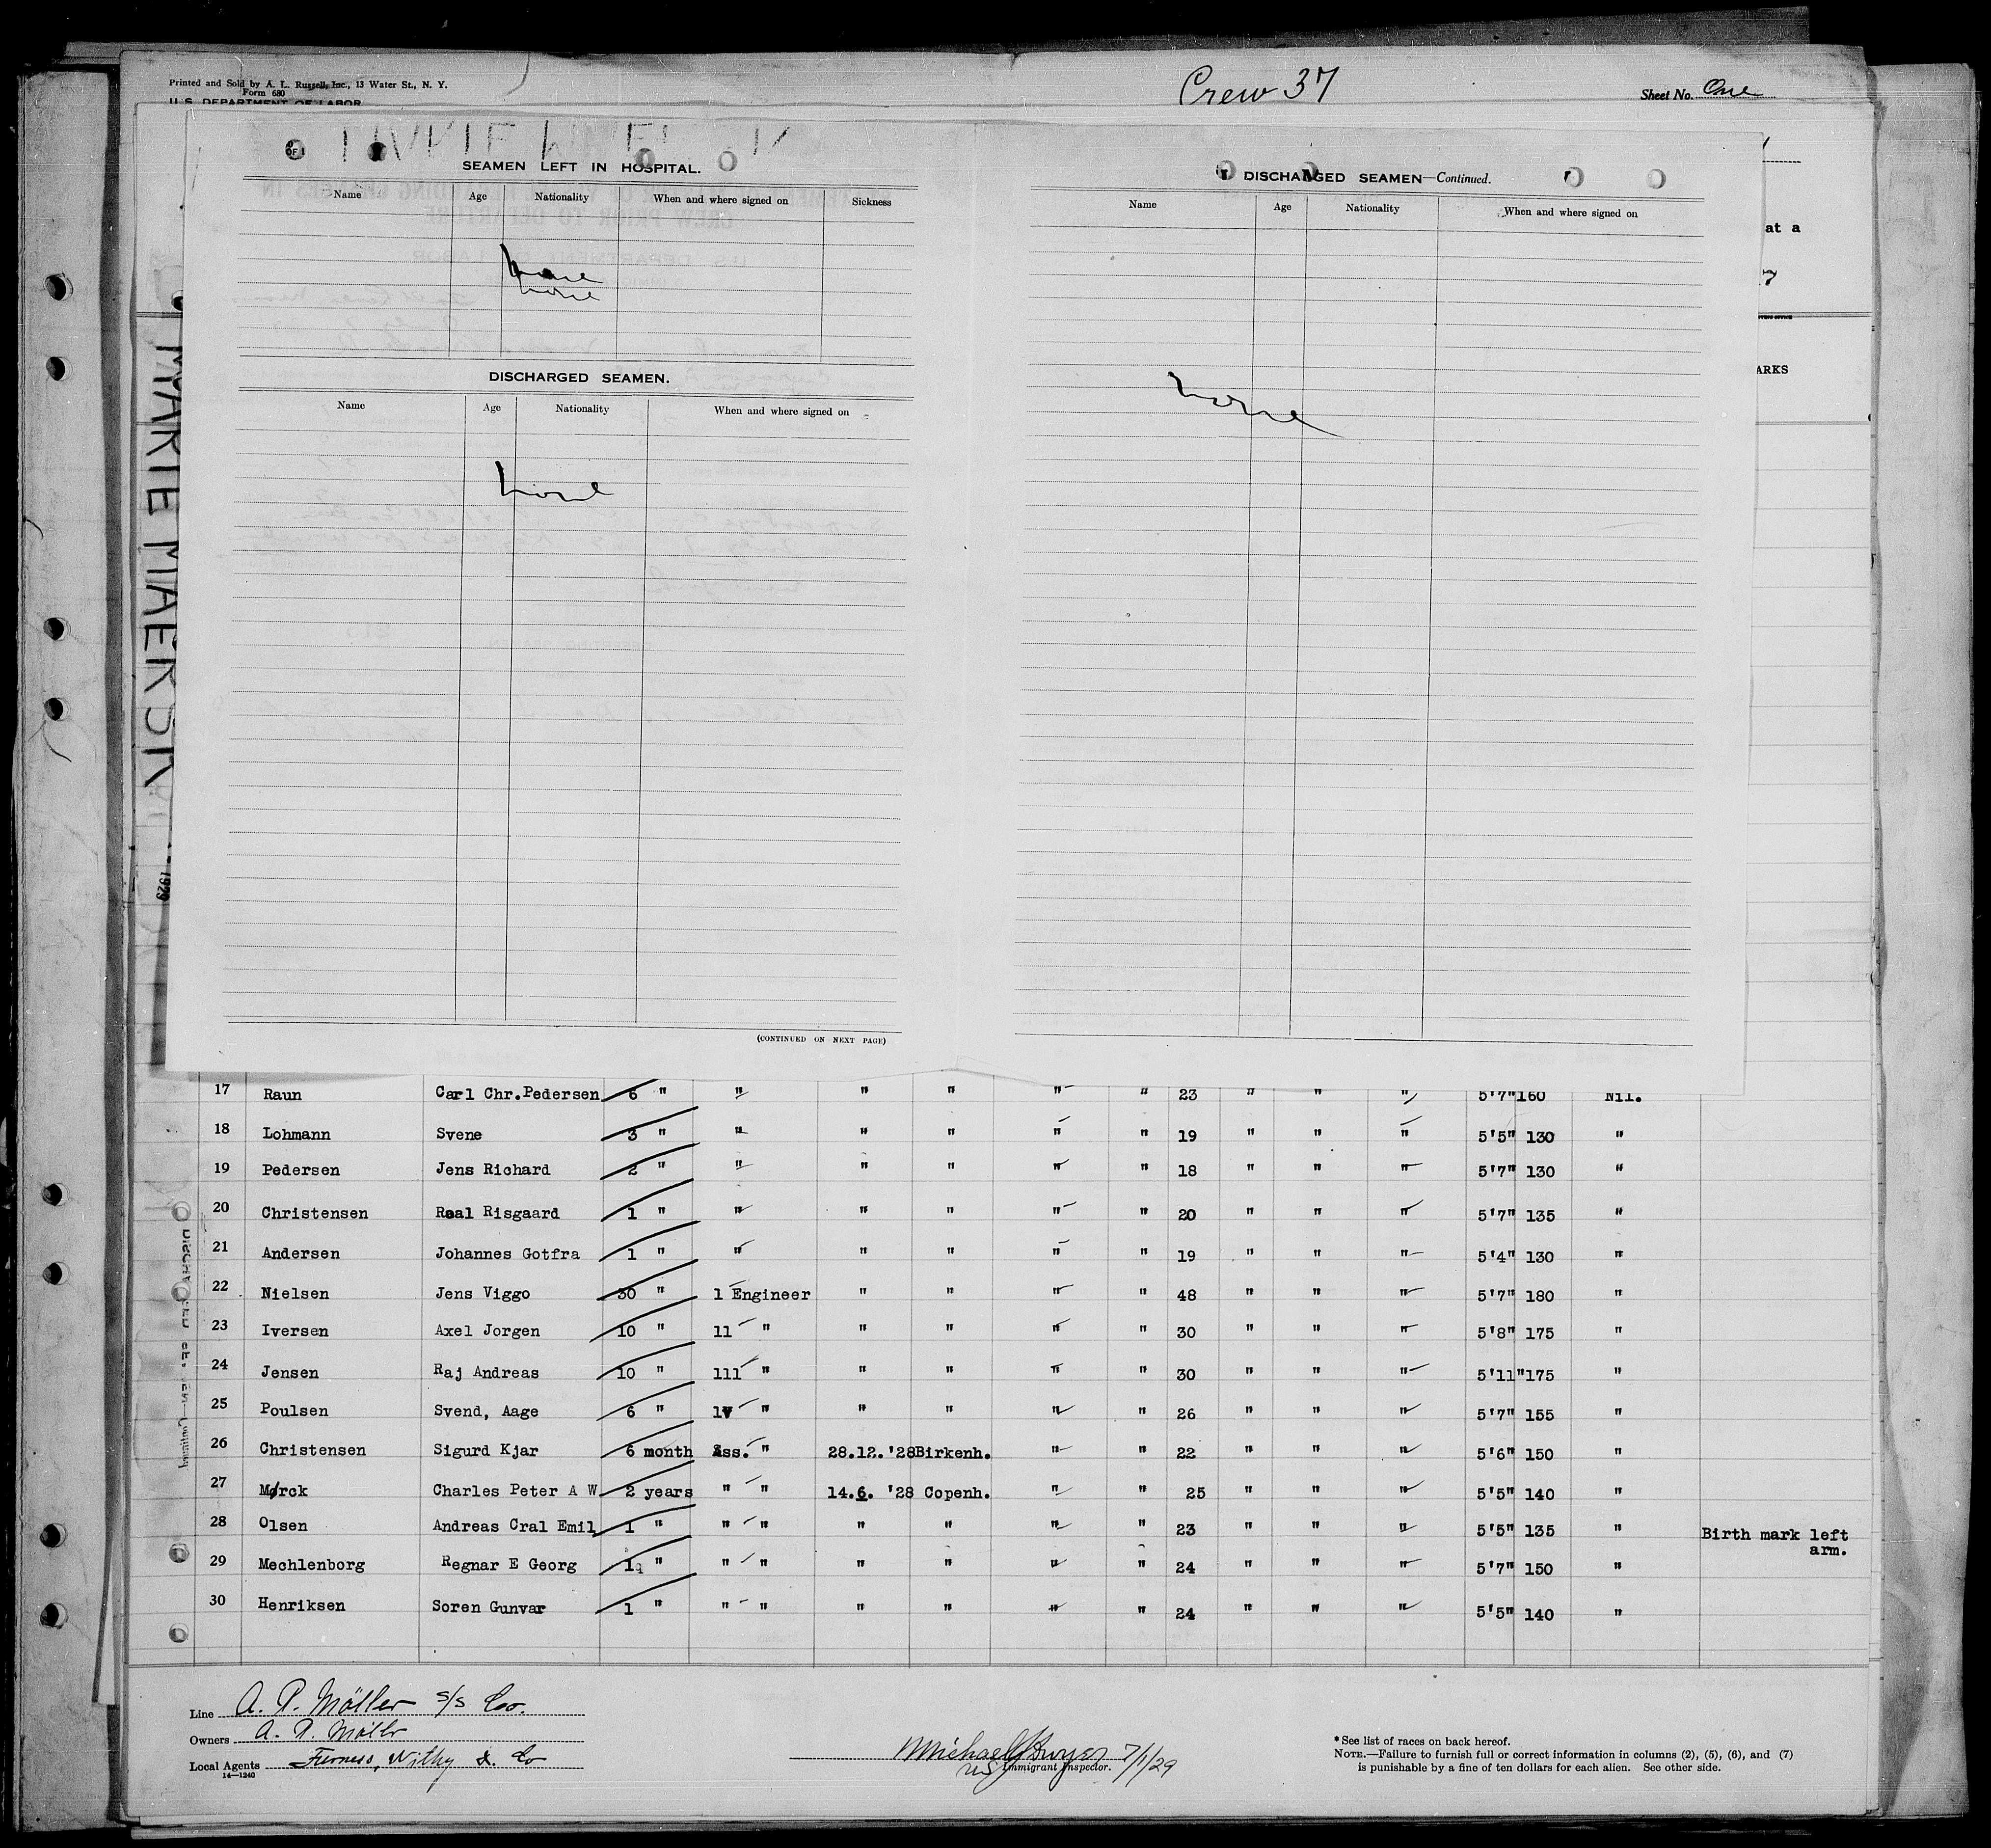 Printed and Sold by A. L. Russell, Inc., 13 Water St., N. Y.
Form 680
U.S. DEPARTMENT OF LABOR
Crew 37
Sheet No. One
SEAMEN LEFT IN HOSPITAL.
Name Age Nationality When and where signed on Sickness
none
none
DISCHARGED SEAMEN.
Name Age Nationality When and where signed on
none
(CONTINUED ON NEXT PAGE)
DISCHARGED SEAMEN—Continued.
Name Age Nationality When and where signed on
none
at a
7
ARKS
MARIE MAERSK
1929
17 Raun Carl Chr.Pedersen 6 " " " " " " 23 " " " 5'7" 160 Nil.
18 Lohmann Svene 3 " " " " " " 19 " " " 5'5" 130 "
19 Pedersen Jens Richard 2 " " " " " " 18 " " " 5'7" 130 "
20 Christensen Roal Risgaard 1 " " " " " " 20 " " " 5'7" 135 "
21 Andersen Johannes Gotfra 1 " " " " " " 19 " " " 5'4" 130 "
22 Nielsen Jens Viggo 30 " 1 Engineer " " " " 48 " " " 5'7" 180 "
23 Iversen Axel Jorgen 10 " 11 " " " " " 30 " " " 5'8" 175 "
24 Jensen Raj Andreas 10 " 111 " " " " " 30 " " " 5'11" 175 "
25 Poulsen Svend, Aage 6 " 1V " " " " " 26 " " " 5'7" 155 "
26 Christensen Sigurd Kjar 6 month Ass. " 28.12.'28 Birkenh. " " 22 " " " 5'6" 150 "
27 Mørck Charles Peter A W 2 years " " 14.6. '28 Copenh. " " 25 " " " 5'5" 140 "
28 Olsen Andreas Cral Emil 1 " " " " " " " 23 " " " 5'5" 135 " Birth mark left arm.
29 Mechlenborg Regnar E Georg 1 " " " " " " " 24 " " " 5'7" 150 "
30 Henriksen Soren Gunvar 1 " " " " " " " 24 " " " 5'5" 140 "
Line A. P. Möller s/s Co.
Owners A. P. Möller
Local Agents Furness, Withy & Co
14—1240
Michael J Dwyer 7/1/29
US Immigrant Inspector.
* See list of races on back hereof.
NOTE.—Failure to furnish full or correct information in columns (2), (5), (6), and (7)
is punishable by a fine of ten dollars for each alien. See other side.